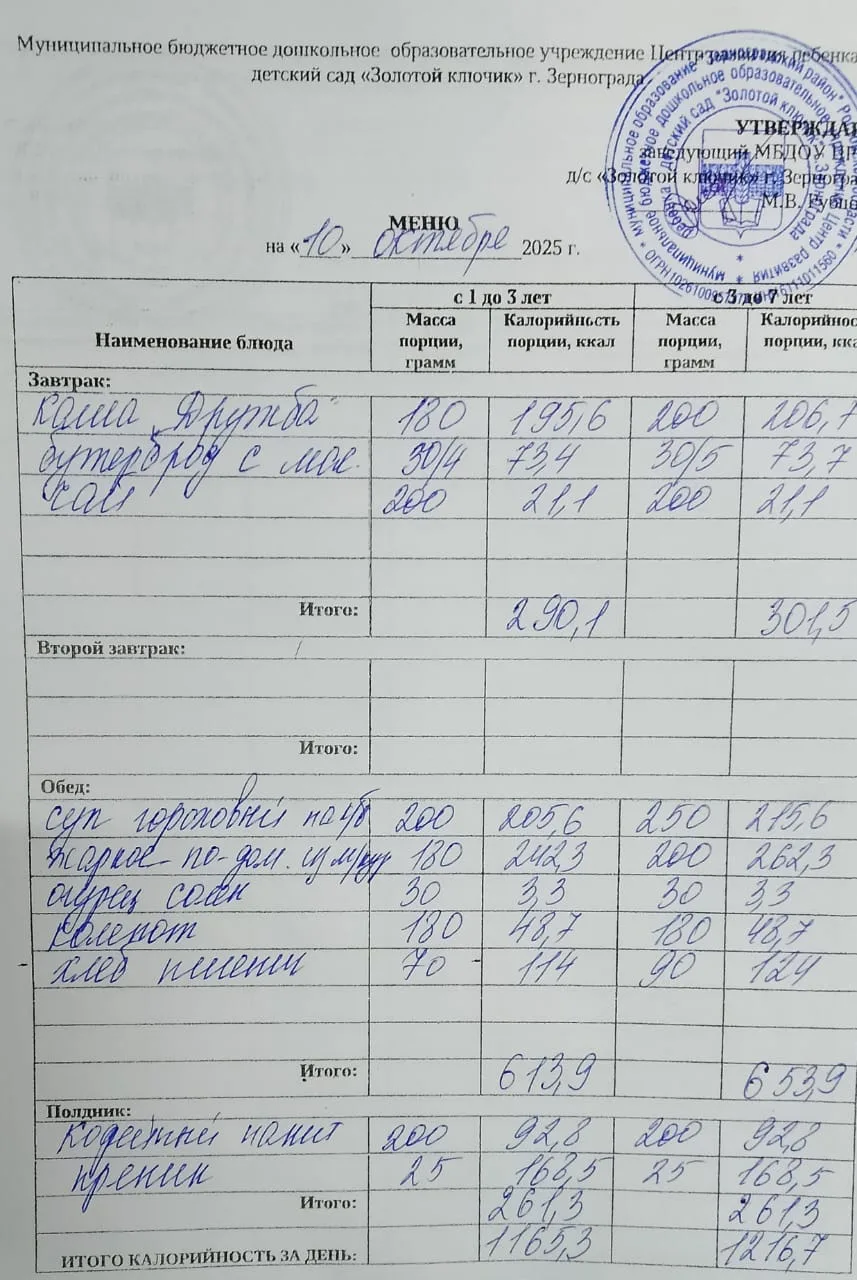 Муниципальное бюджетное дошкольное образовательное учреждение Центр развития ребенка
детский сад «Золотой ключик» г. Зернограда
УТВЕРЖДАЮ
заведующий МБДОУ ЦР
д/с «Золотой ключик» г. Зерногра
М.В. Рубц
МЕНЮ
на «10» октября 2025 г.
Наименование блюда с 1 до 3 лет с 3 до 7 лет
Масса порции, грамм Калорийность порции, ккал Масса порции, грамм Калорийнос порции, кка
Завтрак:
каша "Дружба" 180 195,6 200 206,7
бутерброд с мас. 30/4 73,4 30/5 73,7
чай 200 21,1 200 21,1
Итого: 290,1 301,5
Второй завтрак: /
Итого:
Обед:
суп гороховый на к/б 200 205,6 250 215,6
жаркое по-дом. из м/кур 180 242,3 200 262,3
огурец солен 30 3,3 30 3,3
компот 180 48,7 180 48,7
хлеб пшенич 70 114 90 124
Итого: 613,9 653,9
Полдник:
кофейный напит 200 92,8 200 92,8
пряник 25 168,5 25 168,5
Итого: 261,3 261,3
ИТОГО КАЛОРИЙНОСТЬ ЗА ДЕНЬ: 1165,3 1216,7